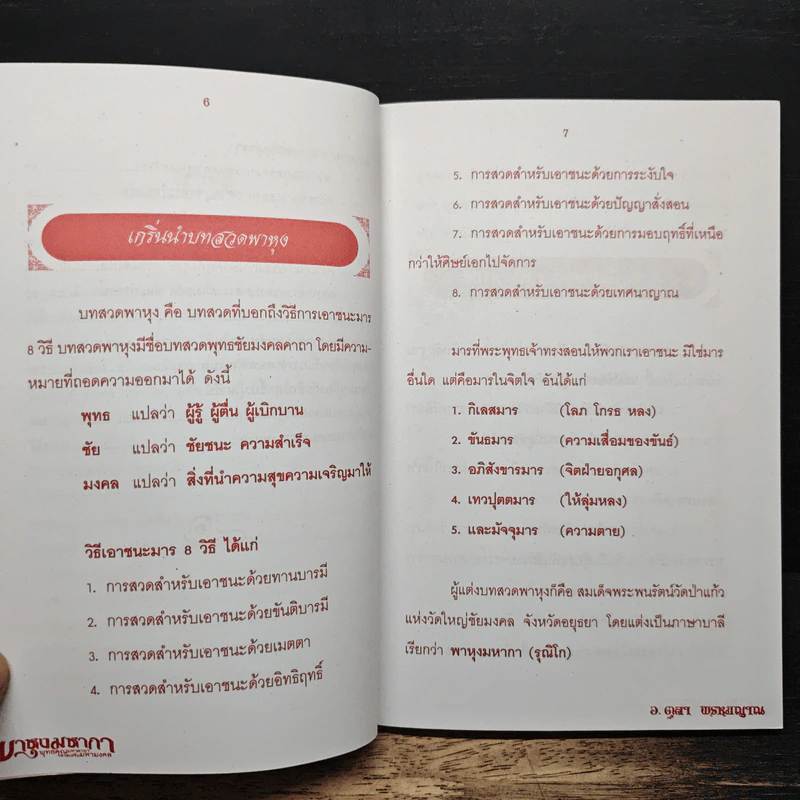 6
เกริ่นนำบทสวดพาหุง
บทสวดพาหุง คือ บทสวดที่บอกถึงวิธีการเอาชนะมาร
8 วิธี บทสวดพาหุงมีชื่อบทสวดพุทธชัยมงคลคาถา โดยมีความ-
หมายที่ถอดความออกมาได้ ดังนี้
พุทธ แปลว่า ผู้รู้ ผู้ตื่น ผู้เบิกบาน
ชัย แปลว่า ชัยชนะ ความสำเร็จ
มงคล แปลว่า สิ่งที่นำความสุขความเจริญมาให้
วิธีเอาชนะมาร 8 วิธี ได้แก่
1. การสวดสำหรับเอาชนะด้วยทานบารมี
2. การสวดสำหรับเอาชนะด้วยขันติบารมี
3. การสวดสำหรับเอาชนะด้วยเมตตา
4. การสวดสำหรับเอาชนะด้วยอิทธิฤทธิ์
พาหุงมหากา
7
5. การสวดสำหรับเอาชนะด้วยการระงับใจ
6. การสวดสำหรับเอาชนะด้วยปัญญาสั่งสอน
7. การสวดสำหรับเอาชนะด้วยการมอบฤทธิ์ที่เหนือ
กว่าให้ศิษย์เอกไปจัดการ
8. การสวดสำหรับเอาชนะด้วยเทศนาญาณ
มารที่พระพุทธเจ้าทรงสอนให้พวกเราเอาชนะ มิใช่มาร
อื่นใด แต่คือมารในจิตใจ อันได้แก่
1. กิเลสมาร (โลภ โกรธ หลง)
2. ขันธมาร (ความเสื่อมของขันธ์)
3. อภิสังขารมาร (จิตฝ่ายอกุศล)
4. เทวปุตตมาร (ให้ลุ่มหลง)
5. และมัจจุมาร (ความตาย)
ผู้แต่งบทสวดพาหุงก็คือ สมเด็จพระพนรัตน์วัดป่าแก้ว
แห่งวัดใหญ่ชัยมงคล จังหวัดอยุธยา โดยแต่งเป็นภาษาบาลี
เรียกว่า พาหุงมหากา (รุณิโก)
อ. ตุลา พรหมญาณ